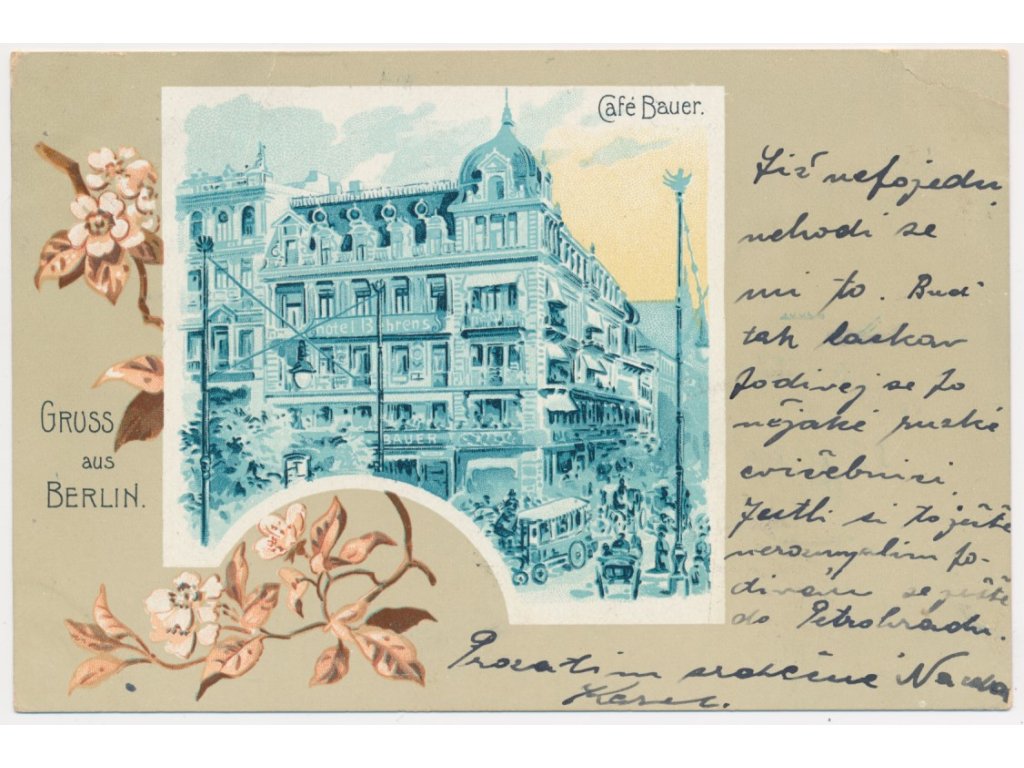 Café Bauer.
Hotel Behrens
BAUER
GRUSS
aus
BERLIN.
Již nepojedu
nehodí se
mi to. Buď
tak laskav
podívej se po
nějaké ruské
cvičebnici
Jestli si to ještě
nerozmyslím po-
dívám se ještě
do Petrohradu.
Prozatím srdečné Nazdar
Karel.